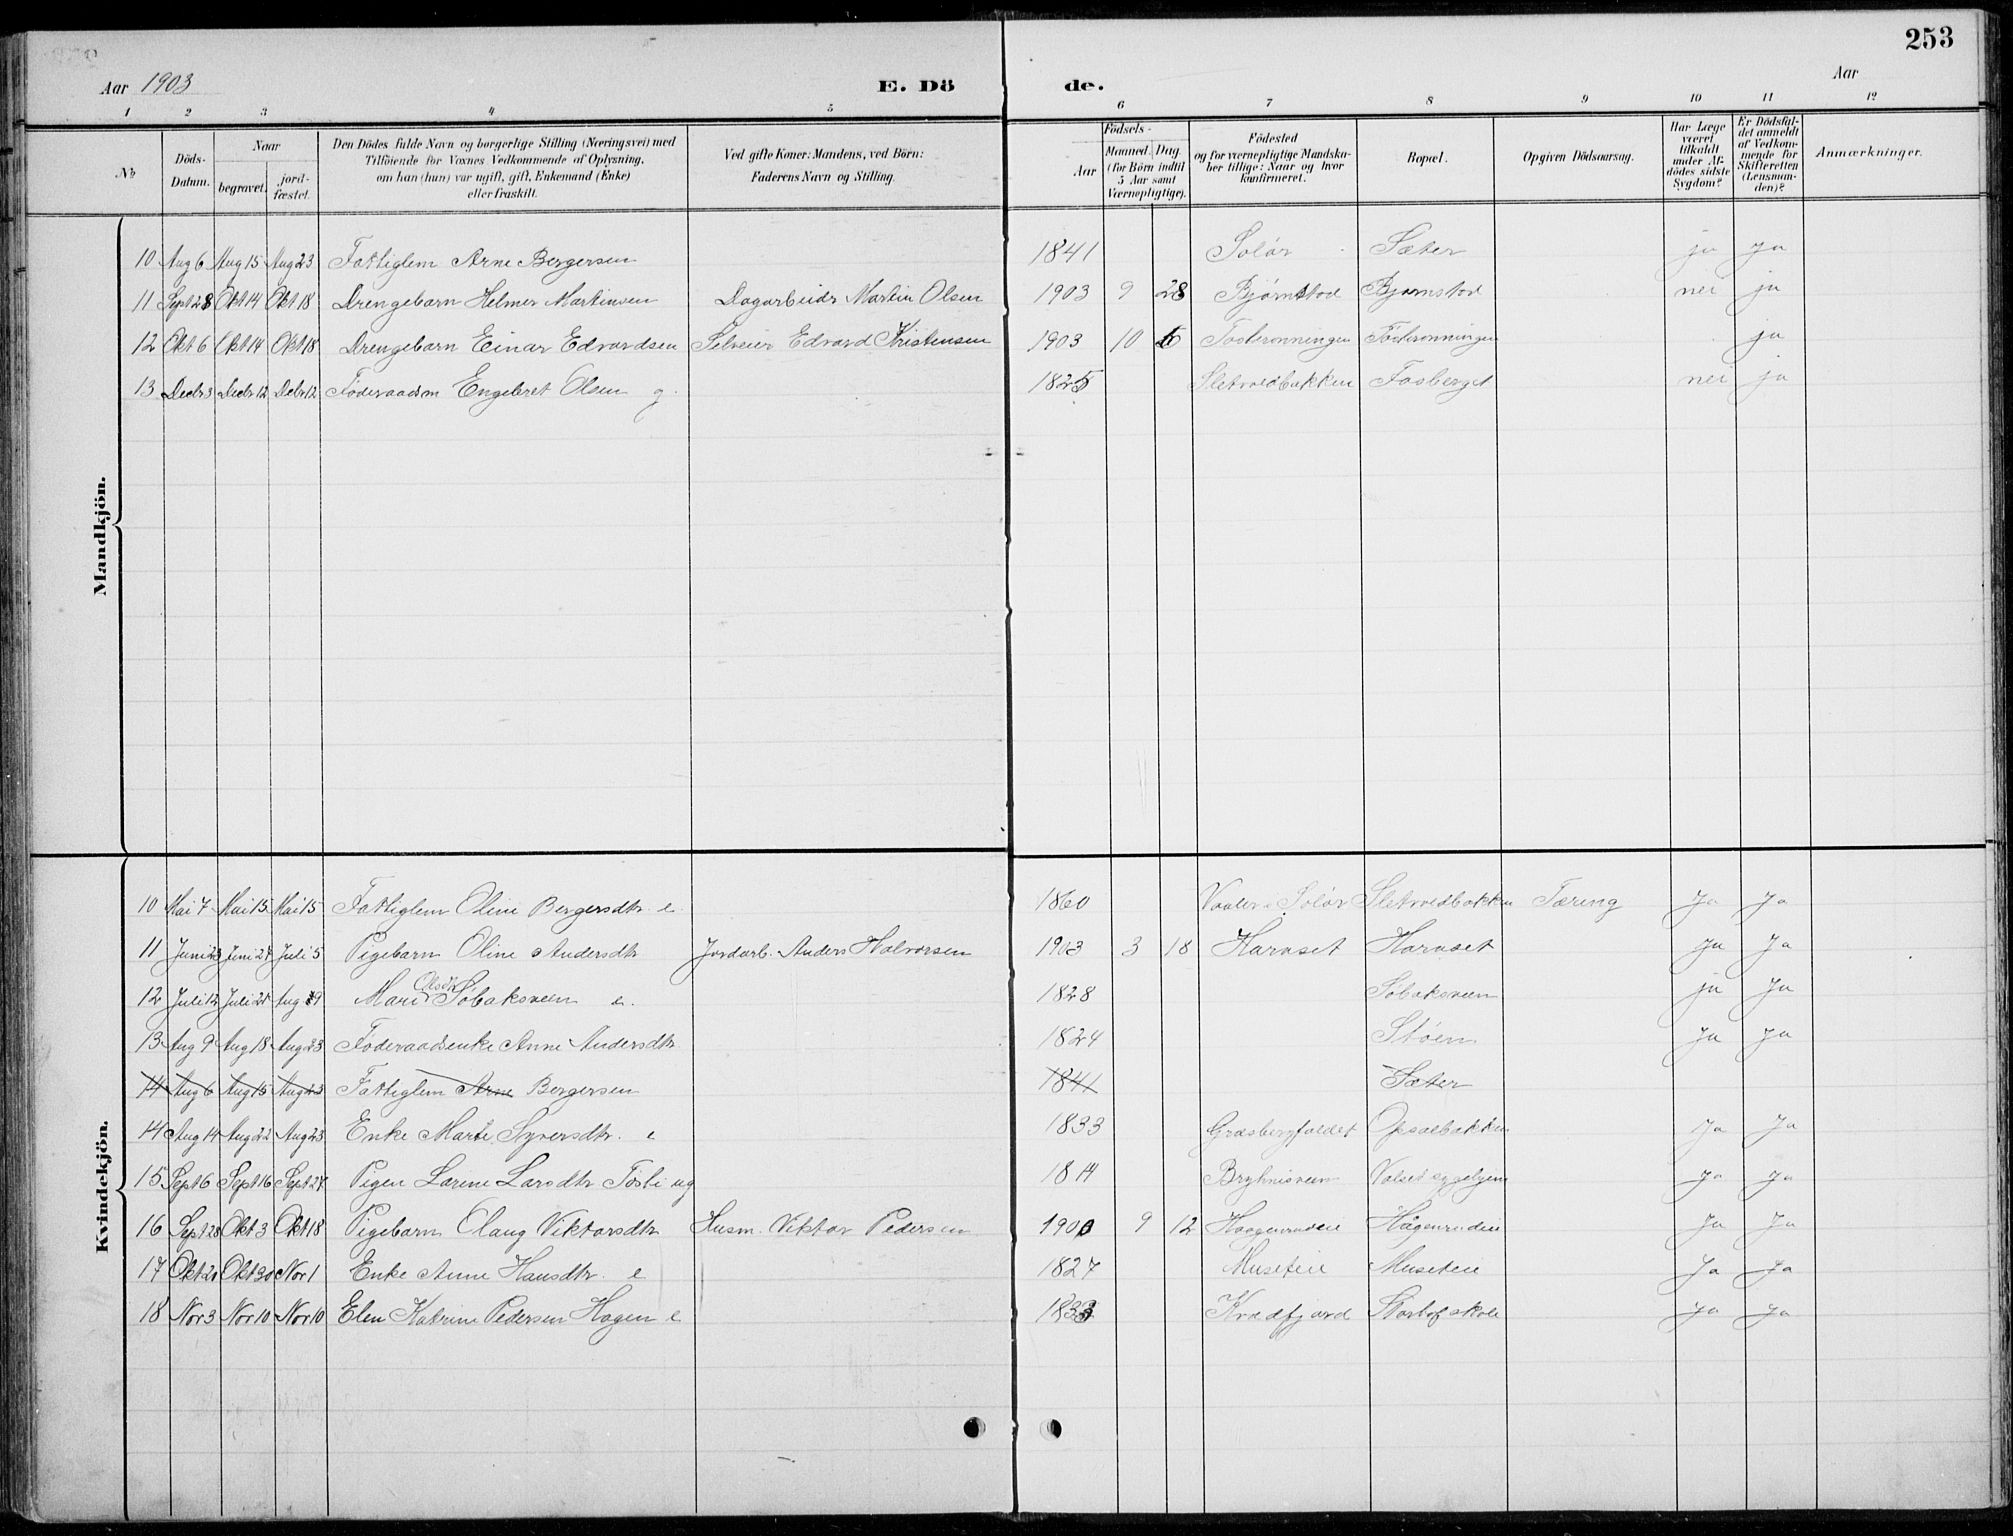 253
Aar 1903 E. Dö de. Aar
1 2 3 4 5 6 7 8 9 10 11 12
No
Döds-Datum.
Naar
begravet. jord-fæstet.
Den Dödes fulde Navn og borgerlige Stilling (Næringsvei) med
Tilföiende for Voxnes Vedkommende af Oplysning,
om han (hun) var ugift, gift, Enkemand (Enke)
eller fraskilt.
Ved gifte Koner: Mandens, ved Börn:
Faderens Navn og Stilling.
Födsels-
Aar Maaned. Dag.
(for Börn indtil
5 Aar samt
Værnepligtige).
Födested
og for værnepligtige Mandska-
ber tillige: Naar og hvor
konfirmeret.
Bopæl.
Opgiven Dödsaarsag.
Har Læge
været
tilkaldt
under Af-
dödes sidste
Sygdom?
Er Dödsfal-
det anmeldt
af Vedkom-
mende for
Skifteretten
(Lensman-
den)?
Anmærkninger.
Mandkjön.
10 Aug 6 Aug 15 Aug 23 Fattiglem Arne Bergersen 1841 Solør Sæter ja ja
11 Sept 28 Okt 14 Okt 18 Drengebarn Helmer Martinsen Dagarbeidr Martin Olsen 1903 9 28 Bjørnstad Bjørnstad nei ja
12 Okt 6 Okt 14 Okt 18 Drengebarn Einar Edvardsen Selveier Edvard Kristensen 1903 10 ja
13 Decbr 3 Decbr 12 Debr 12 Føderaadsm Engebret Olsen g. 1825 Sletvoldbakken Fosberget nei ja
Kvindekjön.
10 Mai 7 Mai 15 Mai 15 Fattiglem Oline Bergersdtr e. 1860 Vaaler i Solør Sletvoldbakken Tæring Ja Ja
11 Juni 23 Juni 27 Juli 5 Pigebarn Oline Andersdtr Jordarb. Anders Halvorsen 1903 3 18 Harnset Harnset Ja Ja
12 Juli 12 Juli 21 Aug 9 Mari Olsdtr Søbaksveen e. 1828 Søbaksveen ja Ja
13 Aug 9 Aug 18 Aug 23 Føderaadsenke Anne Andersdtr 1824 Støen Ja Ja
14 Aug 6 Aug 15 Aug 23 Fattiglem Arne Bergersen 1841 Sæter
14 Aug 14 Aug 22 Aug 23 Enke Marte Syversdtr. e 1833 Græsbergfaldet Opsalbakken Ja Ja
15 Sept 6 Sept 16 Sept 27 Pigen Larine Larsdtr Tøsti ug Bryhnisveen Valset sygehjem Ja Ja
16 Sept 28 Okt 3 Okt 18 Pigebarn Olaug Viktorsdtr Husm. Viktor Pedersen 9 12 Haagenrudeie Hågenrudeie Ja Ja
17 Okt 20 Okt 30 Nov 1 Enke Anne Hansdtr. e 1827 Museteie Museteie Ja Ja
18 Nov 3 Nov 10 Nov 10 Elen Katrine Pedersen Hagen e 1833 Kvædfjord Storhof skole Ja Ja